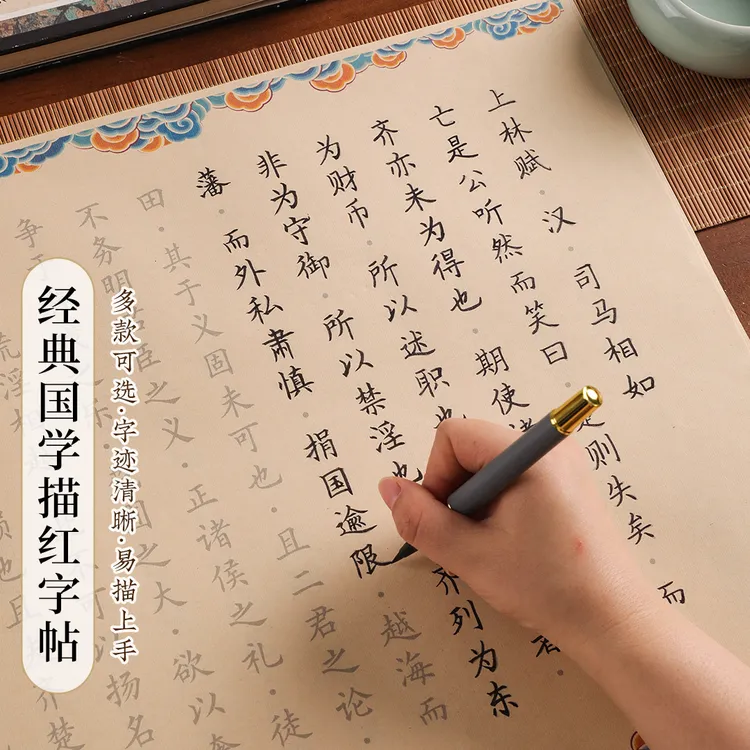 上林赋·汉 司马相如
亡是公听然而笑曰
则失矣·而
齐亦未为得也·期使诸
者
为财币·所以述职也
非为守御·所以禁淫也
齐列为东
藩·而外私肃慎·捐国逾限·越海而
田·其于义固未可也·且二君之论·
不务明君臣之义·正诸侯之礼·徒
争于
之大·欲以
荒淫相
以扬名
损也且
齐楚
经典国学描红字帖
多款可选·字迹清晰·易描上手